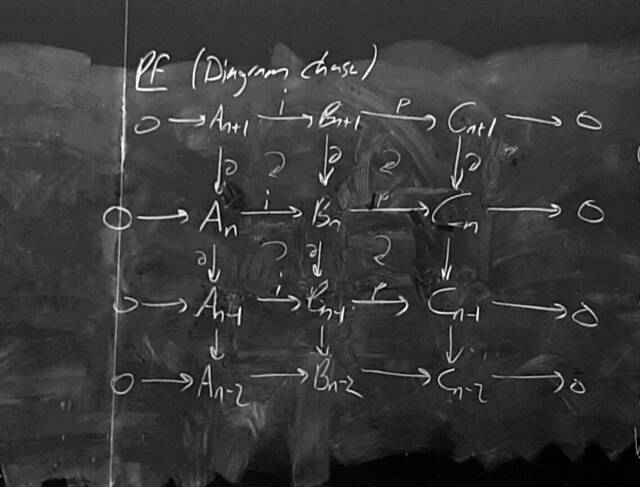 PF (Diagram chase)
0 → A_{n+1} →^{i} B_{n+1} →^{p} C_{n+1} → 0
↓∂ ↓∂ ↓∂
0 → A_n →^{i} B_n →^{p} C_n → 0
∂↓ ∂↓ ↓
0 → A_{n-1} →^{i} B_{n-1} →^{p} C_{n-1} → 0
↓ ↓ ↓
0 → A_{n-2} → B_{n-2} → C_{n-2} → 0